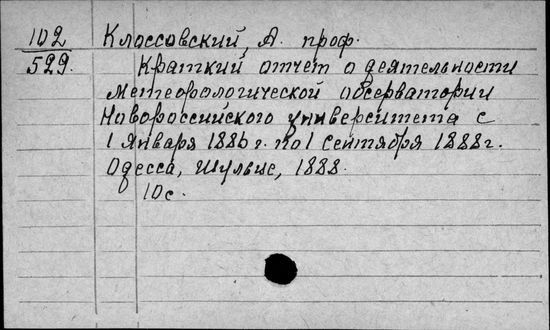 102 Клоссовский, А. проф.
529. Краткий отчет о деятельности
метеорологической обсерватории
Новороссийского университета с
1 января 1886 г. по 1 сентября 1888 г.
Одесса, Шульце, 1888.
10 с.